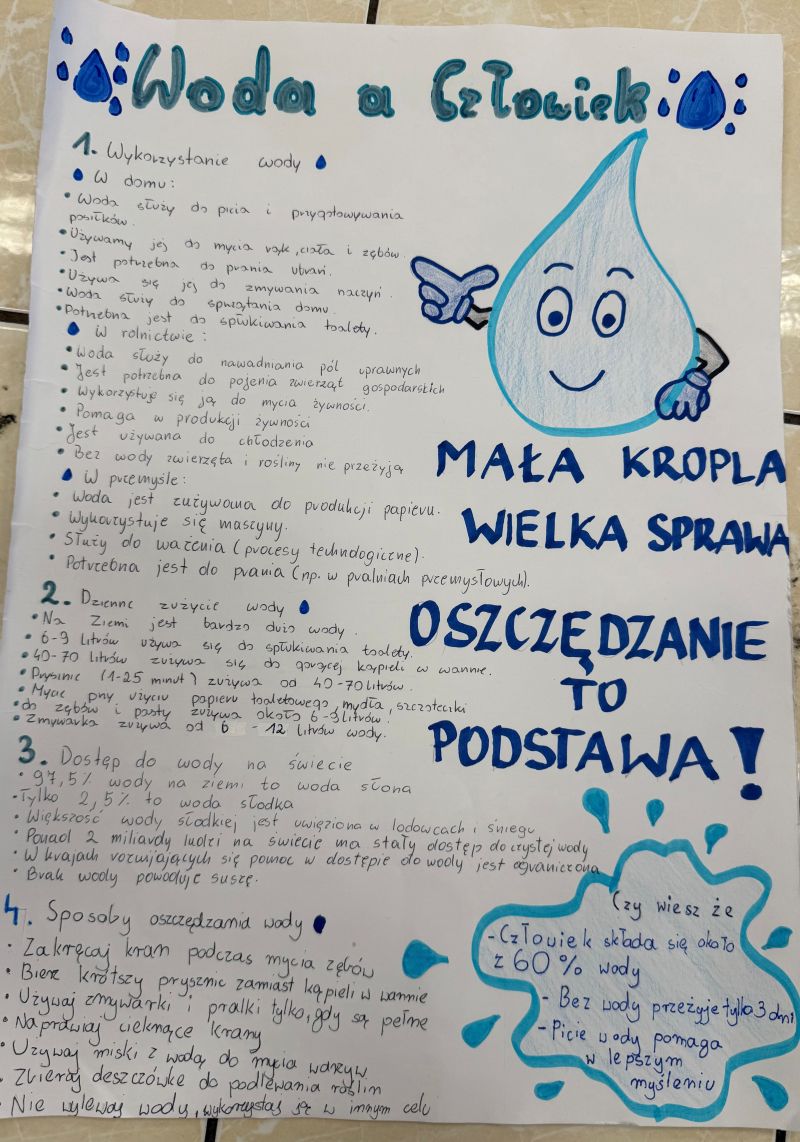 Woda a Człowiek
1. Wykorzystanie wody
W domu:
• Woda służy do picia i przygotowywania
posiłków.
• Używamy jej do mycia rąk, ciała i zębów.
• Jest potrzebna do prania ubrań.
• Używa się jej do zmywania naczyń.
• Woda służy do sprzątania domu.
• Potrzebna jest do spłukiwania toalety.
W rolnictwie:
• Woda służy do nawadniania pól uprawnych
• Jest potrzebna do pojenia zwierząt gospodarskich
• Wykorzystuje się ją do mycia żywności.
• Pomaga w produkcji żywności
• Jest używana do chłodzenia
• Bez wody zwierzęta i rośliny nie przeżyją
W przemyśle:
• Woda jest zużywana do produkcji papieru.
• Wykorzystuje się maszyny.
• Służy do ważenia (procesy technologiczne).
• Potrzebna jest do prania (np. w pralniach przemysłowych).
2. Dzienne zużycie wody
• Na Ziemi jest bardzo dużo wody.
• 6-9 litrów używa się do spłukiwania toalety.
• 40-70 litrów zużywa się do gorącej kąpieli w wannie.
• Prysznic (1-25 minut) zużywa od 40-70 litrów.
• Mycie przy użyciu papieru toaletowego, mydła, szczoteczki
• do zębów i pasty zużywa około 6-9 litrów.
• Zmywarka zużywa od 6 - 12 litrów wody.
3. Dostęp do wody na świecie
• 97,5% wody na ziemi to woda słona
• Tylko 2,5% to woda słodka
• Większość wody słodkiej jest uwięziona w lodowcach i śniegu
• Ponad 2 miliardy ludzi na świecie ma stały dostęp do czystej wody
• W krajach rozwijających się pomoc w dostępie do wody jest ograniczona
• Brak wody powoduje suszę.
4. Sposoby oszczędzania wody
• Zakręcaj kran podczas mycia zębów
• Bierz krótszy prysznic zamiast kąpieli w wannie
• Używaj zmywarki i pralki tylko, gdy są pełne
• Naprawiaj cieknące krany
• Używaj miski z wodą do mycia warzyw
• Zbieraj deszczówkę do podlewania roślin
• Nie wylewaj wody, wykorzystaj ją w innym celu
MAŁA KROPLA
WIELKA SPRAWA
OSZCZĘDZANIE
TO
PODSTAWA!
Czy wiesz że
- Człowiek składa się około
z 60% wody
- Bez wody przeżyje tylko 3 dni
- Picie wody pomaga
w lepszym
myśleniu